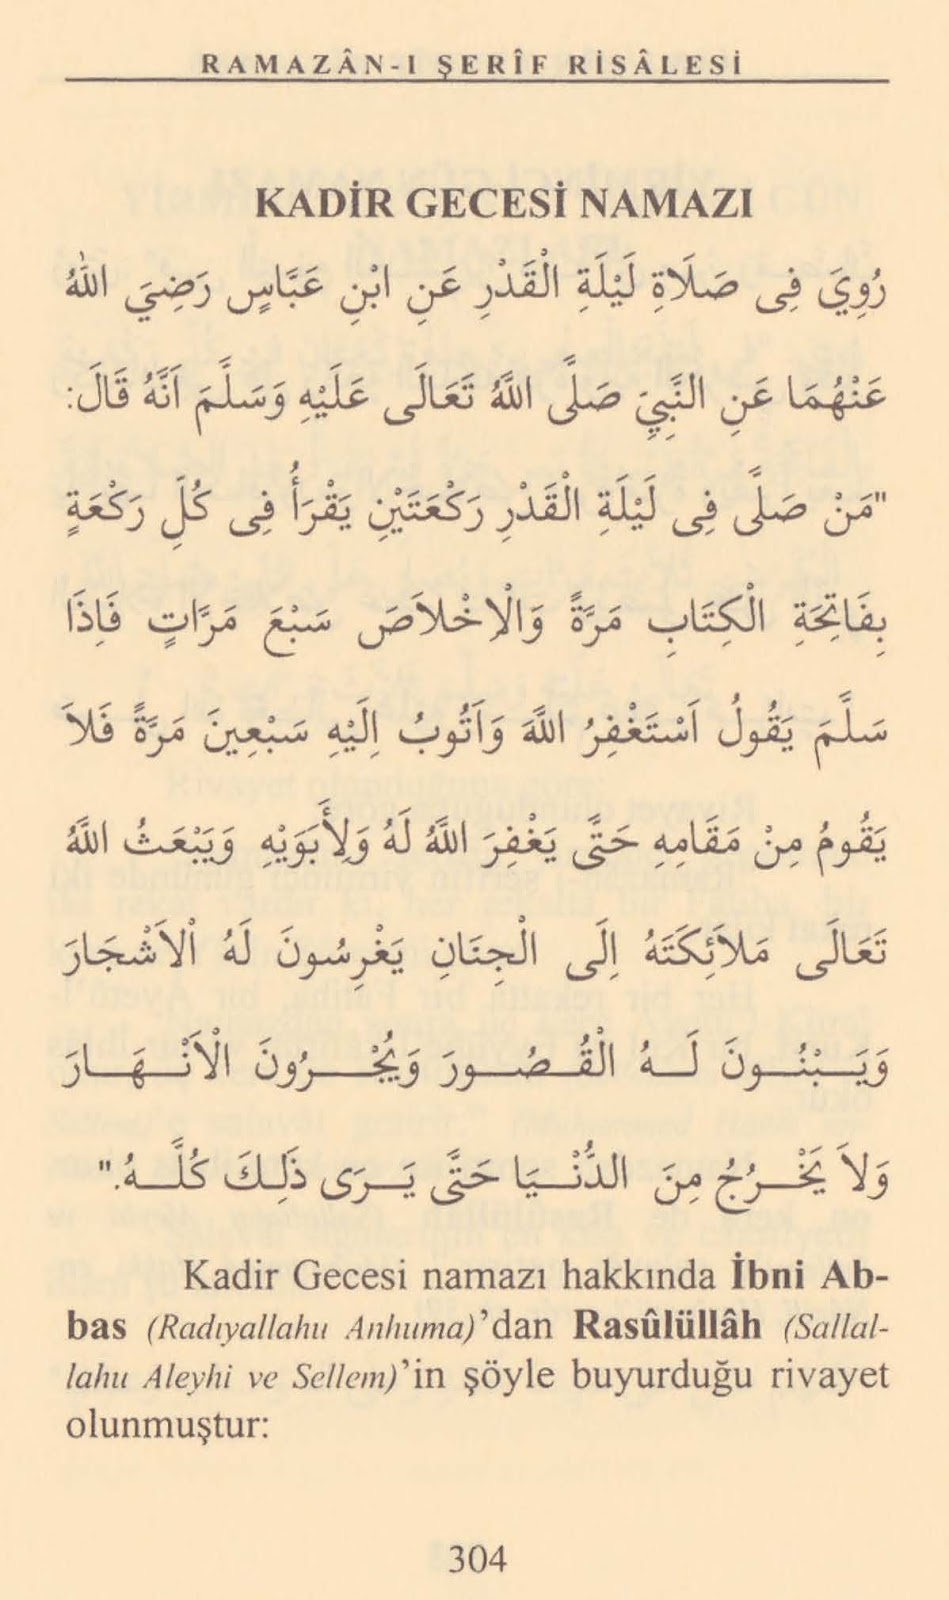 RAMAZÂN-I ŞERÎF RİSÂLESİ
KADİR GECESİ NAMAZI
رُوِيَ فِى صَلَاةِ لَيْلَةِ الْقَدْرِ عَنِ ابْنِ عَبَّاسٍ رَضِيَ اللهُ
عَنْهُمَا عَنِ النَّبِيِّ صَلَّى اللهُ تَعَالَى عَلَيْهِ وَسَلَّمَ اَنَّهُ قَالَ:
"مَنْ صَلَّى فِى لَيْلَةِ الْقَدْرِ رَكْعَتَيْنِ يَقْرَأُ فِى كُلِّ رَكْعَةٍ
بِفَاتِحَةِ الْكِتَابِ مَرَّةً وَالْاِخْلاَصَ سَبْعَ مَرَّاتٍ فَاِذَا
سَلَّمَ يَقُولُ اَسْتَغْفِرُ اللهَ وَاَتُوبُ اِلَيْهِ سَبْعِينَ مَرَّةً فَلاَ
يَقُومُ مِنْ مَقَامِهِ حَتَّى يَغْفِرَ اللهُ لَهُ وَلِأَبَوَيْهِ وَيَبْعَثُ اللهُ
تَعَالَى مَلاَئِكَتَهُ اِلَى الْجِنَانِ يَغْرِسُونَ لَهُ اْلاَشْجَارَ
وَيَـبْنُـونَ لَـهُ الْقُـصُـورَ وَيُجْـرُونَ الْاَنْـهَـارَ
وَلاَ يَخْـرُجُ مِنَ الدُّنْـيَا حَتَّى يَـرَى ذٰلِـكَ كُلَّـهُ."
Kadir Gecesi namazı hakkında İbni Ab-
bas (Radıyallahu Anhuma)'dan Rasûlüllâh (Sallal-
lahu Aleyhi ve Sellem)'in şöyle buyurduğu rivayet
olunmuştur:
304